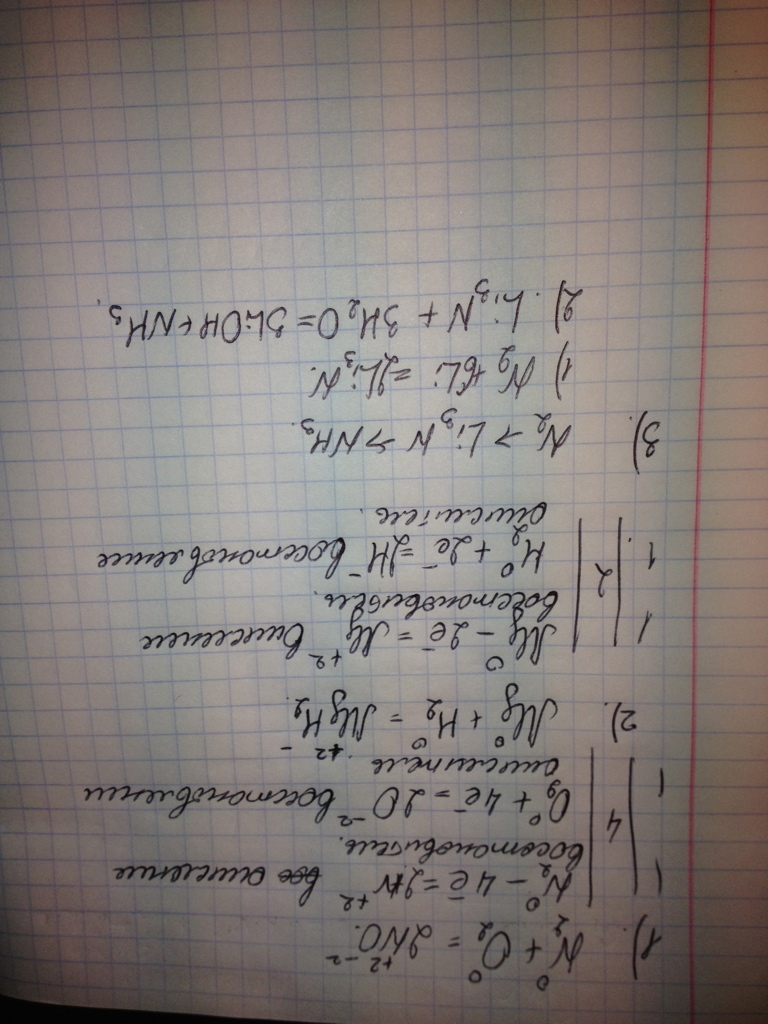 1) N₂⁰ + O₂⁰ = 2N⁺²O⁻².
N₂⁰ - 4e⁻ = 2N⁺² окисление 1
восстановитель. 4
O₂⁰ + 4e⁻ = 2O⁻² восстановлении 1
окислитель
2) Mg⁰ + H₂⁰ = Mg⁺²H₂⁻
Mg⁰ - 2e⁻ = Mg⁺² окисление 1
восстановитель. 2
H₂⁰ + 2e⁻ = 2H⁻ восстановление 1
окислитель.
3) N₂ → Li₃N → NH₃.
1) N₂ + 6Li = 2Li₃N.
2) Li₃N + 3H₂O = 3LiOH + NH₃.